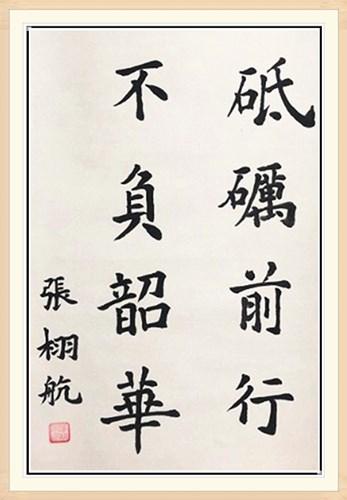 砥礪前行
不負韶華
張栩航